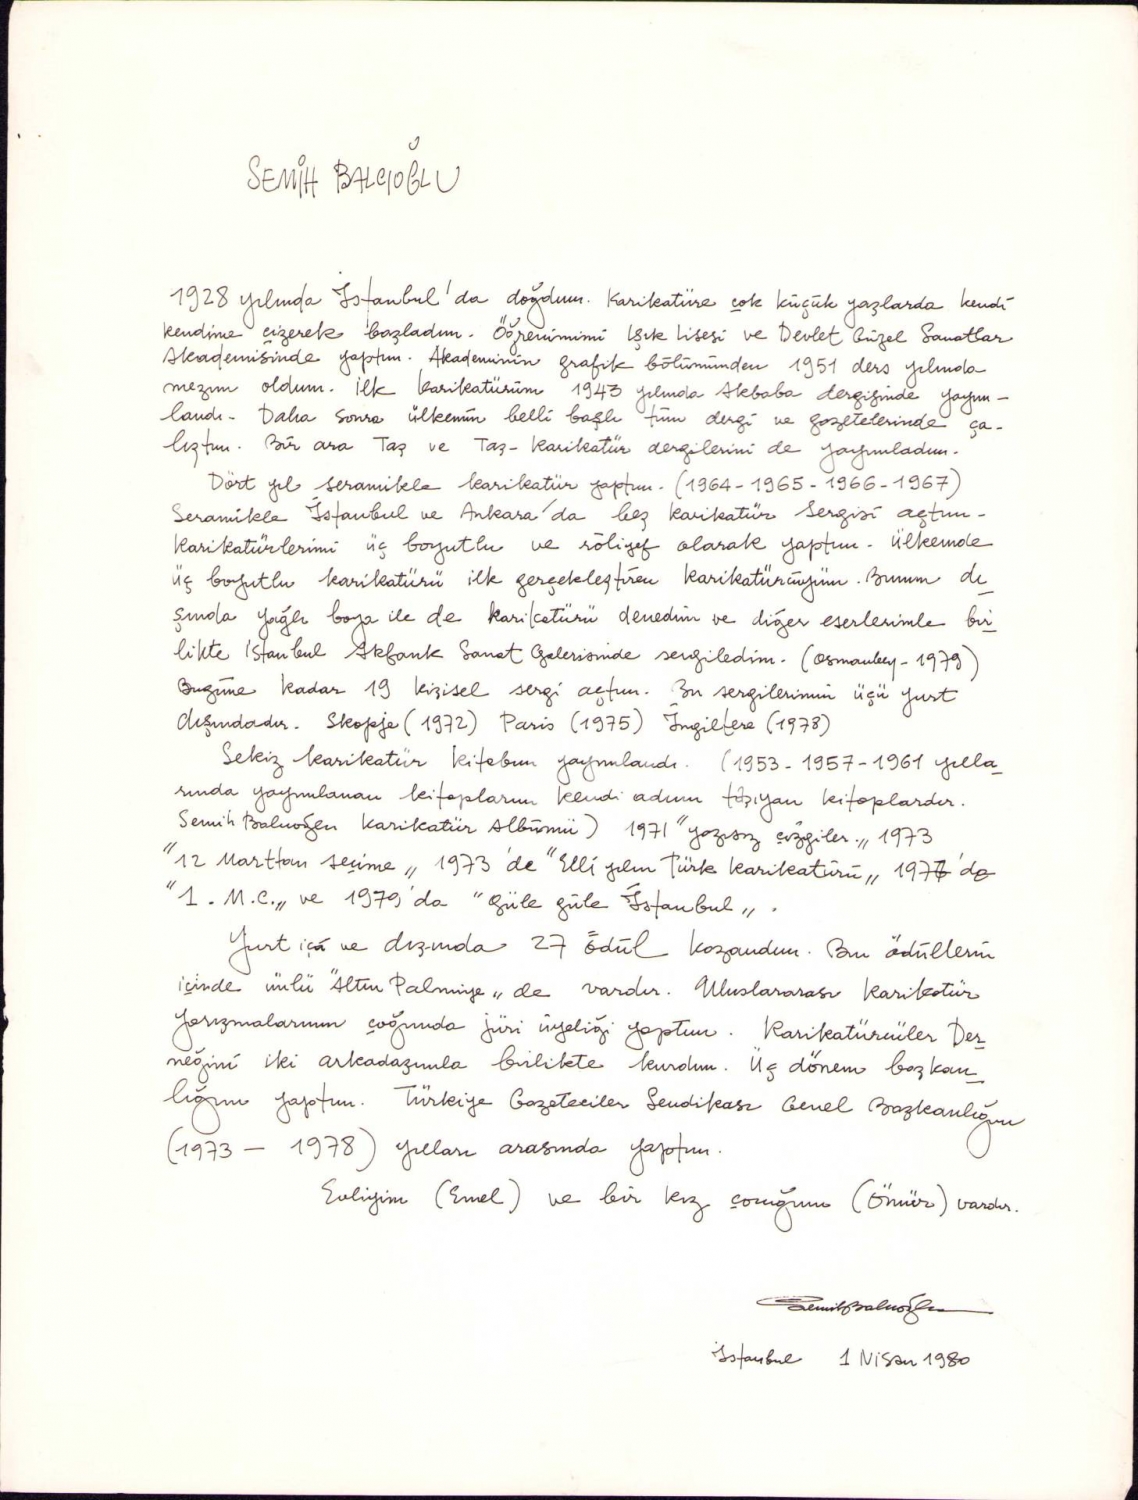 SEMİH BALCIOĞLU
1928 yılında İstanbul'da doğdum. Karikatüre çok küçük yaşlarda kendi
kendime çizerek başladım. Öğrenimimi Işık Lisesi ve Devlet Güzel Sanatlar
Akademisinde yaptım. Akademinin grafik bölümünden 1951 ders yılında
mezun oldum. İlk karikatürüm 1943 yılında Akbaba dergisinde yayın-
landı. Daha sonra ülkemin belli başlı tüm dergi ve gazetelerinde ça-
lıştım. Bir ara Taş ve Taş-Karikatür dergilerini de yayınladım.
Dört yıl seramikle karikatür yaptım. (1964-1965-1966-1967)
Seramikle İstanbul ve Ankara'da beş karikatür sergisi açtım.
Karikatürlerimi üç boyutlu ve röliyef olarak yaptım. Ülkemde
üç boyutlu karikatürü ilk gerçekleştiren karikatürcüyüm. Bunun dı_
şında yağlı boya ile de karikatürü denedim ve diğer eserlerimle bir_
likte İstanbul Akbank Sanat Galerisinde sergiledim. (Osmanbey-1979)
Bugüne kadar 19 kişisel sergi açtım. Bu sergilerimin üçü yurt
dışındadır. Skopje (1972) Paris (1975) İngiltere (1978)
Sekiz karikatür kitabım yayınlandı. (1953-1957-1961 yılla_
rında yayınlanan kitaplarım kendi adımı taşıyan kitaplardır.
Semih Balcıoğlu Karikatür Albümü) 1971 "yazısız çizgiler" 1973
"12 Marttan seçime" 1973'de "Elli yılın Türk Karikatürü" 1977'de
"1. M.C." ve 1979'da "Güle güle İstanbul".
Yurt içi ve dışında 27 ödül kazandım. Bu ödüllerin
içinde ünlü "Altın Palmiye" de vardır. Uluslararası karikatür
yarışmalarının çoğunda jüri üyeliği yaptım. Karikatürcüler Der_
neğini iki arkadaşımla birlikte kurdum. Üç dönem başkan_
lığını yaptım. Türkiye Gazeteciler Sendikası Genel Başkanlığını
(1973 — 1978) yılları arasında yaptım.
Evliyim (Emel) ve bir kız çocuğum (Ömür) vardır.
Semih Balcıoğlu
İstanbul 1 Nisan 1980